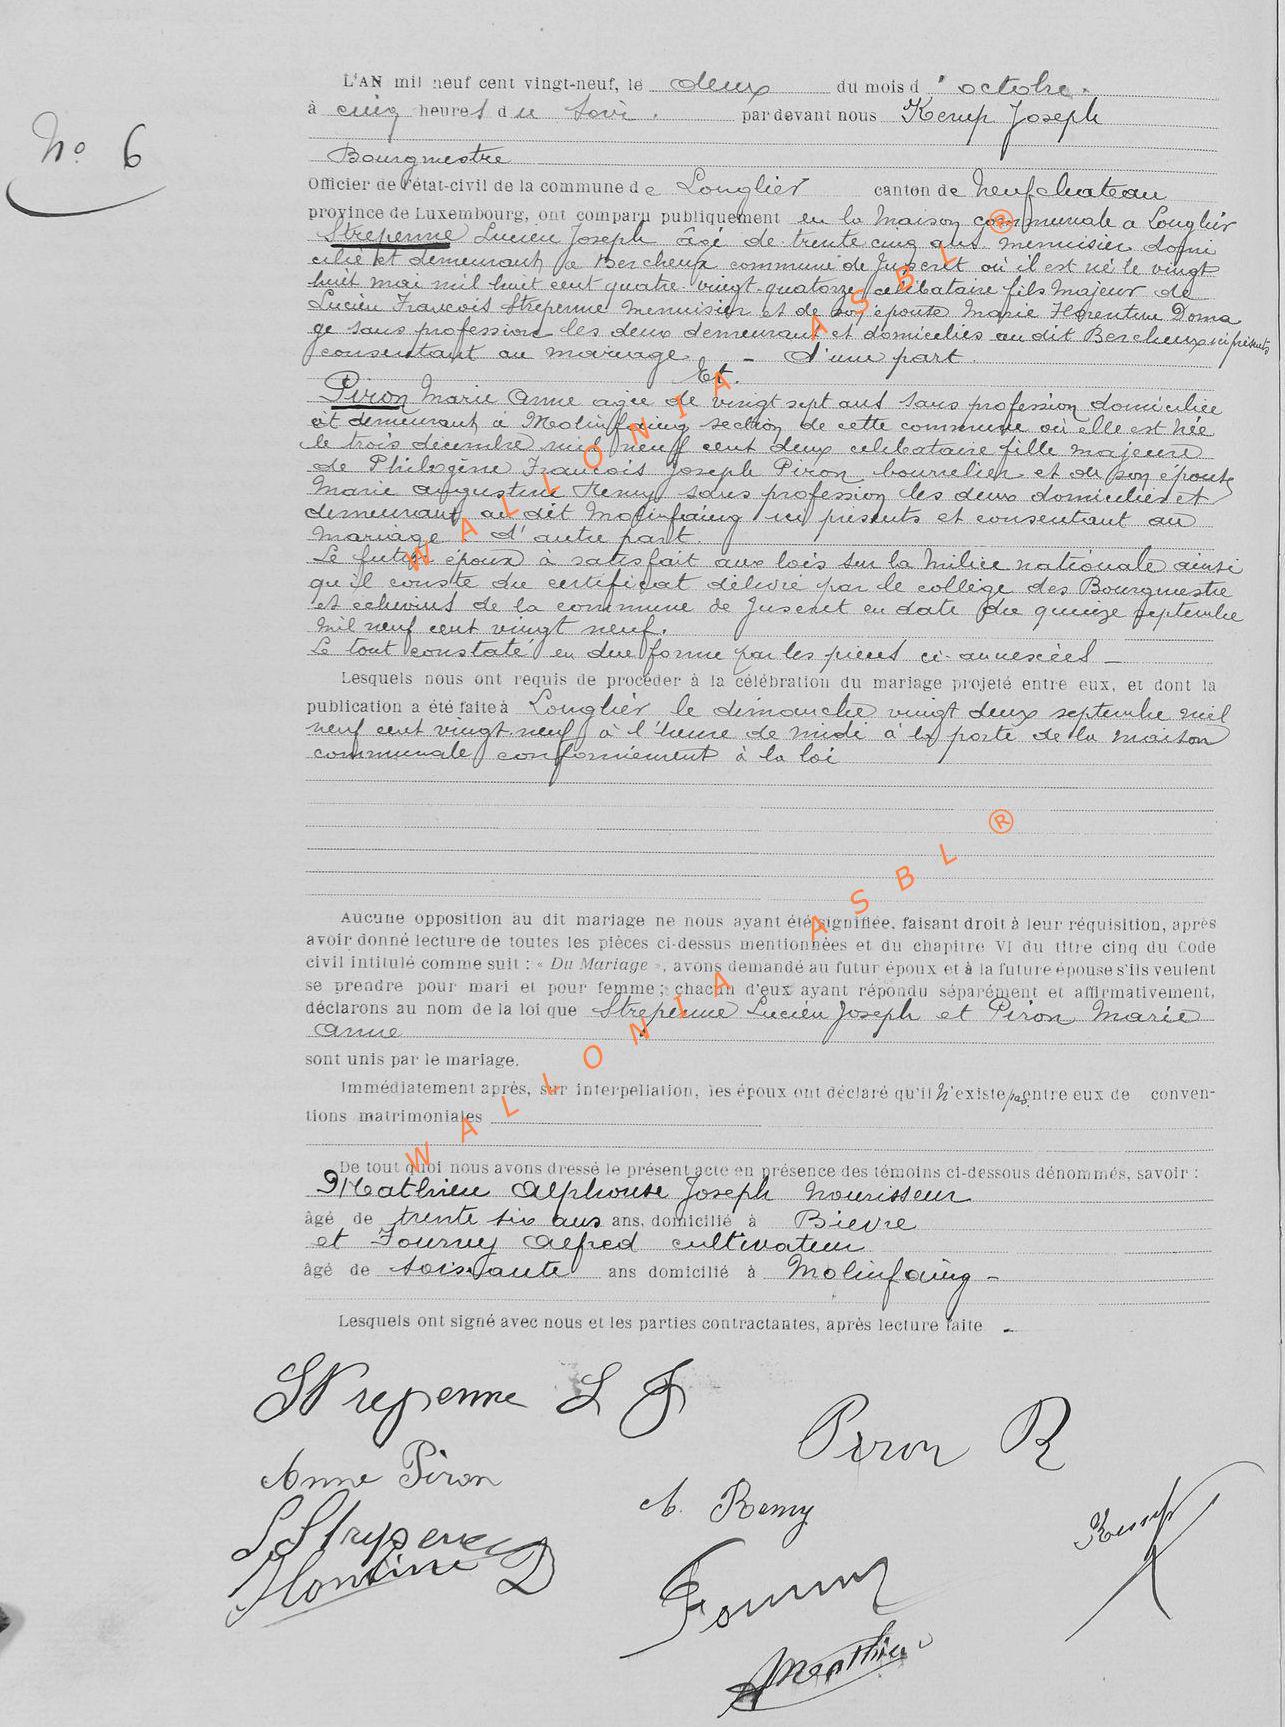 N° 6
L'AN mil neuf cent vingt-neuf, le deux du mois d'octobre.
à cinq heures du soir. par devant nous Kemp Joseph
Bourgmestre
Officier de l'état-civil de la commune de Longlier canton de Neufchateau
province de Luxembourg, ont comparu publiquement en la Maison communale a Longlier
Strepenne Lucien Joseph âgé de trente cinq ans menuisier domi
cilié et demeurant a Bercheux commune de Juseret où il est né le vingt
huit mai mil huit cent quatre-vingt-quatorze, célibataire fils majeur de
Lucien Francois Strepenne menuisier et de son épouse Marie Florentine Doma
ge sans profession les deux demeurant et domiciliés au dit Bercheux ici présents
consentant au mariage – d'une part.
Et.
Piron Marie Anne agée de vingt sept ans sans profession domiciliée
et demeurant à Molinfaing section de cette commune où elle est née
le trois décembre mil neuf cent deux célibataire fille majeure
de Philogène Francois Joseph Piron bourrelier et de son épouse
Marie Augustine Remy sans profession les deux domiciliés et
demeurant au dit Molinfaing ici présents et consentant au
mariage. d'autre part.
Le futur époux à satisfait aux lois sur la milice nationale ainsi
qu'il conste du certificat délivré par le collège des Bourgmestre
et echevins de la commune de Juseret en date du quinze septembre
mil neuf cent vingt neuf.
Le tout constaté en due forme par les pièces ci-annexées –
Lesquels nous ont requis de procéder à la célébration du mariage projeté entre eux, et dont la
publication a été faite à Longlier le dimanche vingt deux septembre mil
neuf cent vingt-neuf à l'heure de midi à la porte de la maison
communale conformément à la loi
Aucune opposition au dit mariage ne nous ayant été signifiée, faisant droit à leur réquisition, après
avoir donné lecture de toutes les pièces ci-dessus mentionnées et du chapitre VI du titre cinq du Code
civil intitulé comme suit : « Du Mariage », avons demandé au futur époux et à la future épouse s'ils veulent
se prendre pour mari et pour femme ; chacun d'eux ayant répondu séparément et affirmativement,
déclarons au nom de la loi que Strepenne Lucien Joseph et Piron Marie
Anne
sont unis par le mariage.
Immédiatement après, sur interpellation, les époux ont déclaré qu'il n'existe pas entre eux de conven-
tions matrimoniales
De tout quoi nous avons dressé le présent acte en présence des témoins ci-dessous dénommés, savoir :
Mathieu Alphonse Joseph nourisseur
âgé de trente six ans ans, domicilié à Bievre
et Fourny Alfred cultivateur
âgé de soixante ans domicilié à Molinfaing –
Lesquels ont signé avec nous et les parties contractantes, après lecture faite –
Strepenne L J
Piron R
Anne Piron
A. Remy
Kemp
L Strepenne
Florentine D
Fourny
Mathieu
WALLONIA ASBL ®
WALLONIA ASBL ®